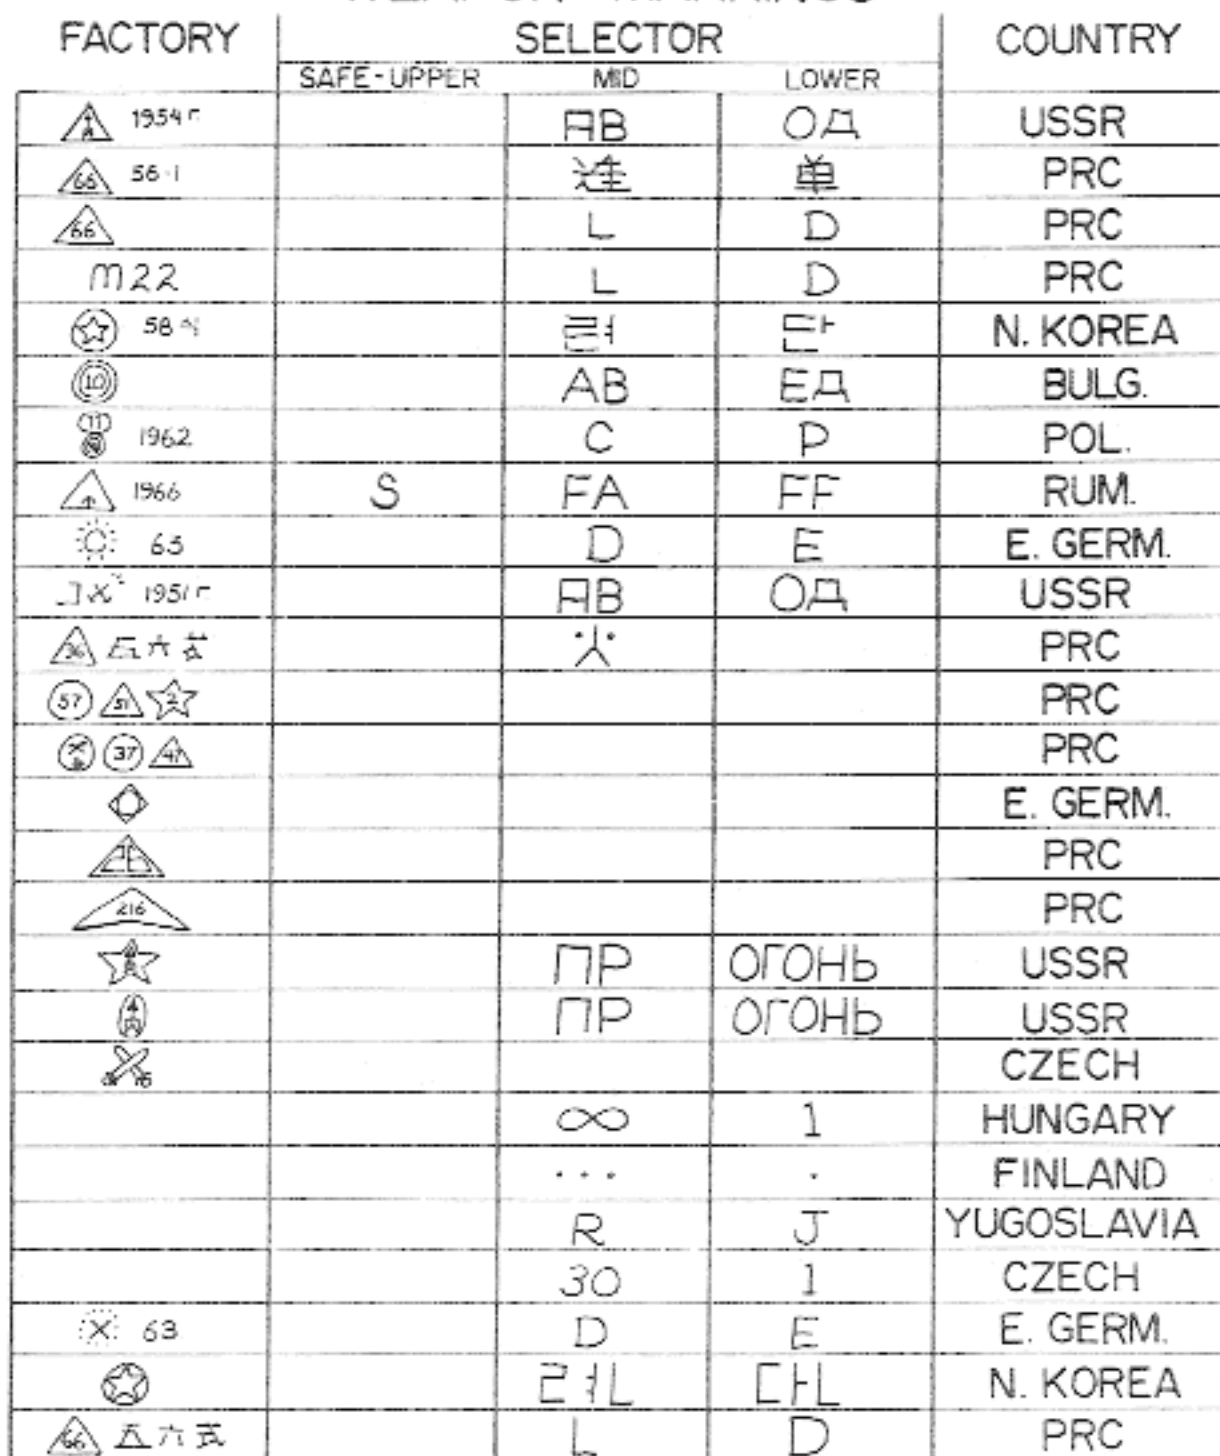 FACTORY SELECTOR COUNTRY
SAFE-UPPER MID LOWER
1954г АВ ОД USSR
66 56-1 連 单 PRC
66 L D PRC
M22 L D PRC
58식 려 단 N. KOREA
10 АВ ЕД BULG.
11 1962 C P POL.
1966 S FA FF RUM.
65 D E E. GERM.
1951г АВ ОД USSR
36 五六 PRC
57 51 2 PRC
37 47 PRC
E. GERM.
PRC
216 PRC
ПР ОГОНЬ USSR
ПР ОГОНЬ USSR
CZECH
∞ 1 HUNGARY
... . FINLAND
R J YUGOSLAVIA
30 1 CZECH
63 D E E. GERM.
련 단 N. KOREA
66 五六式 L D PRC